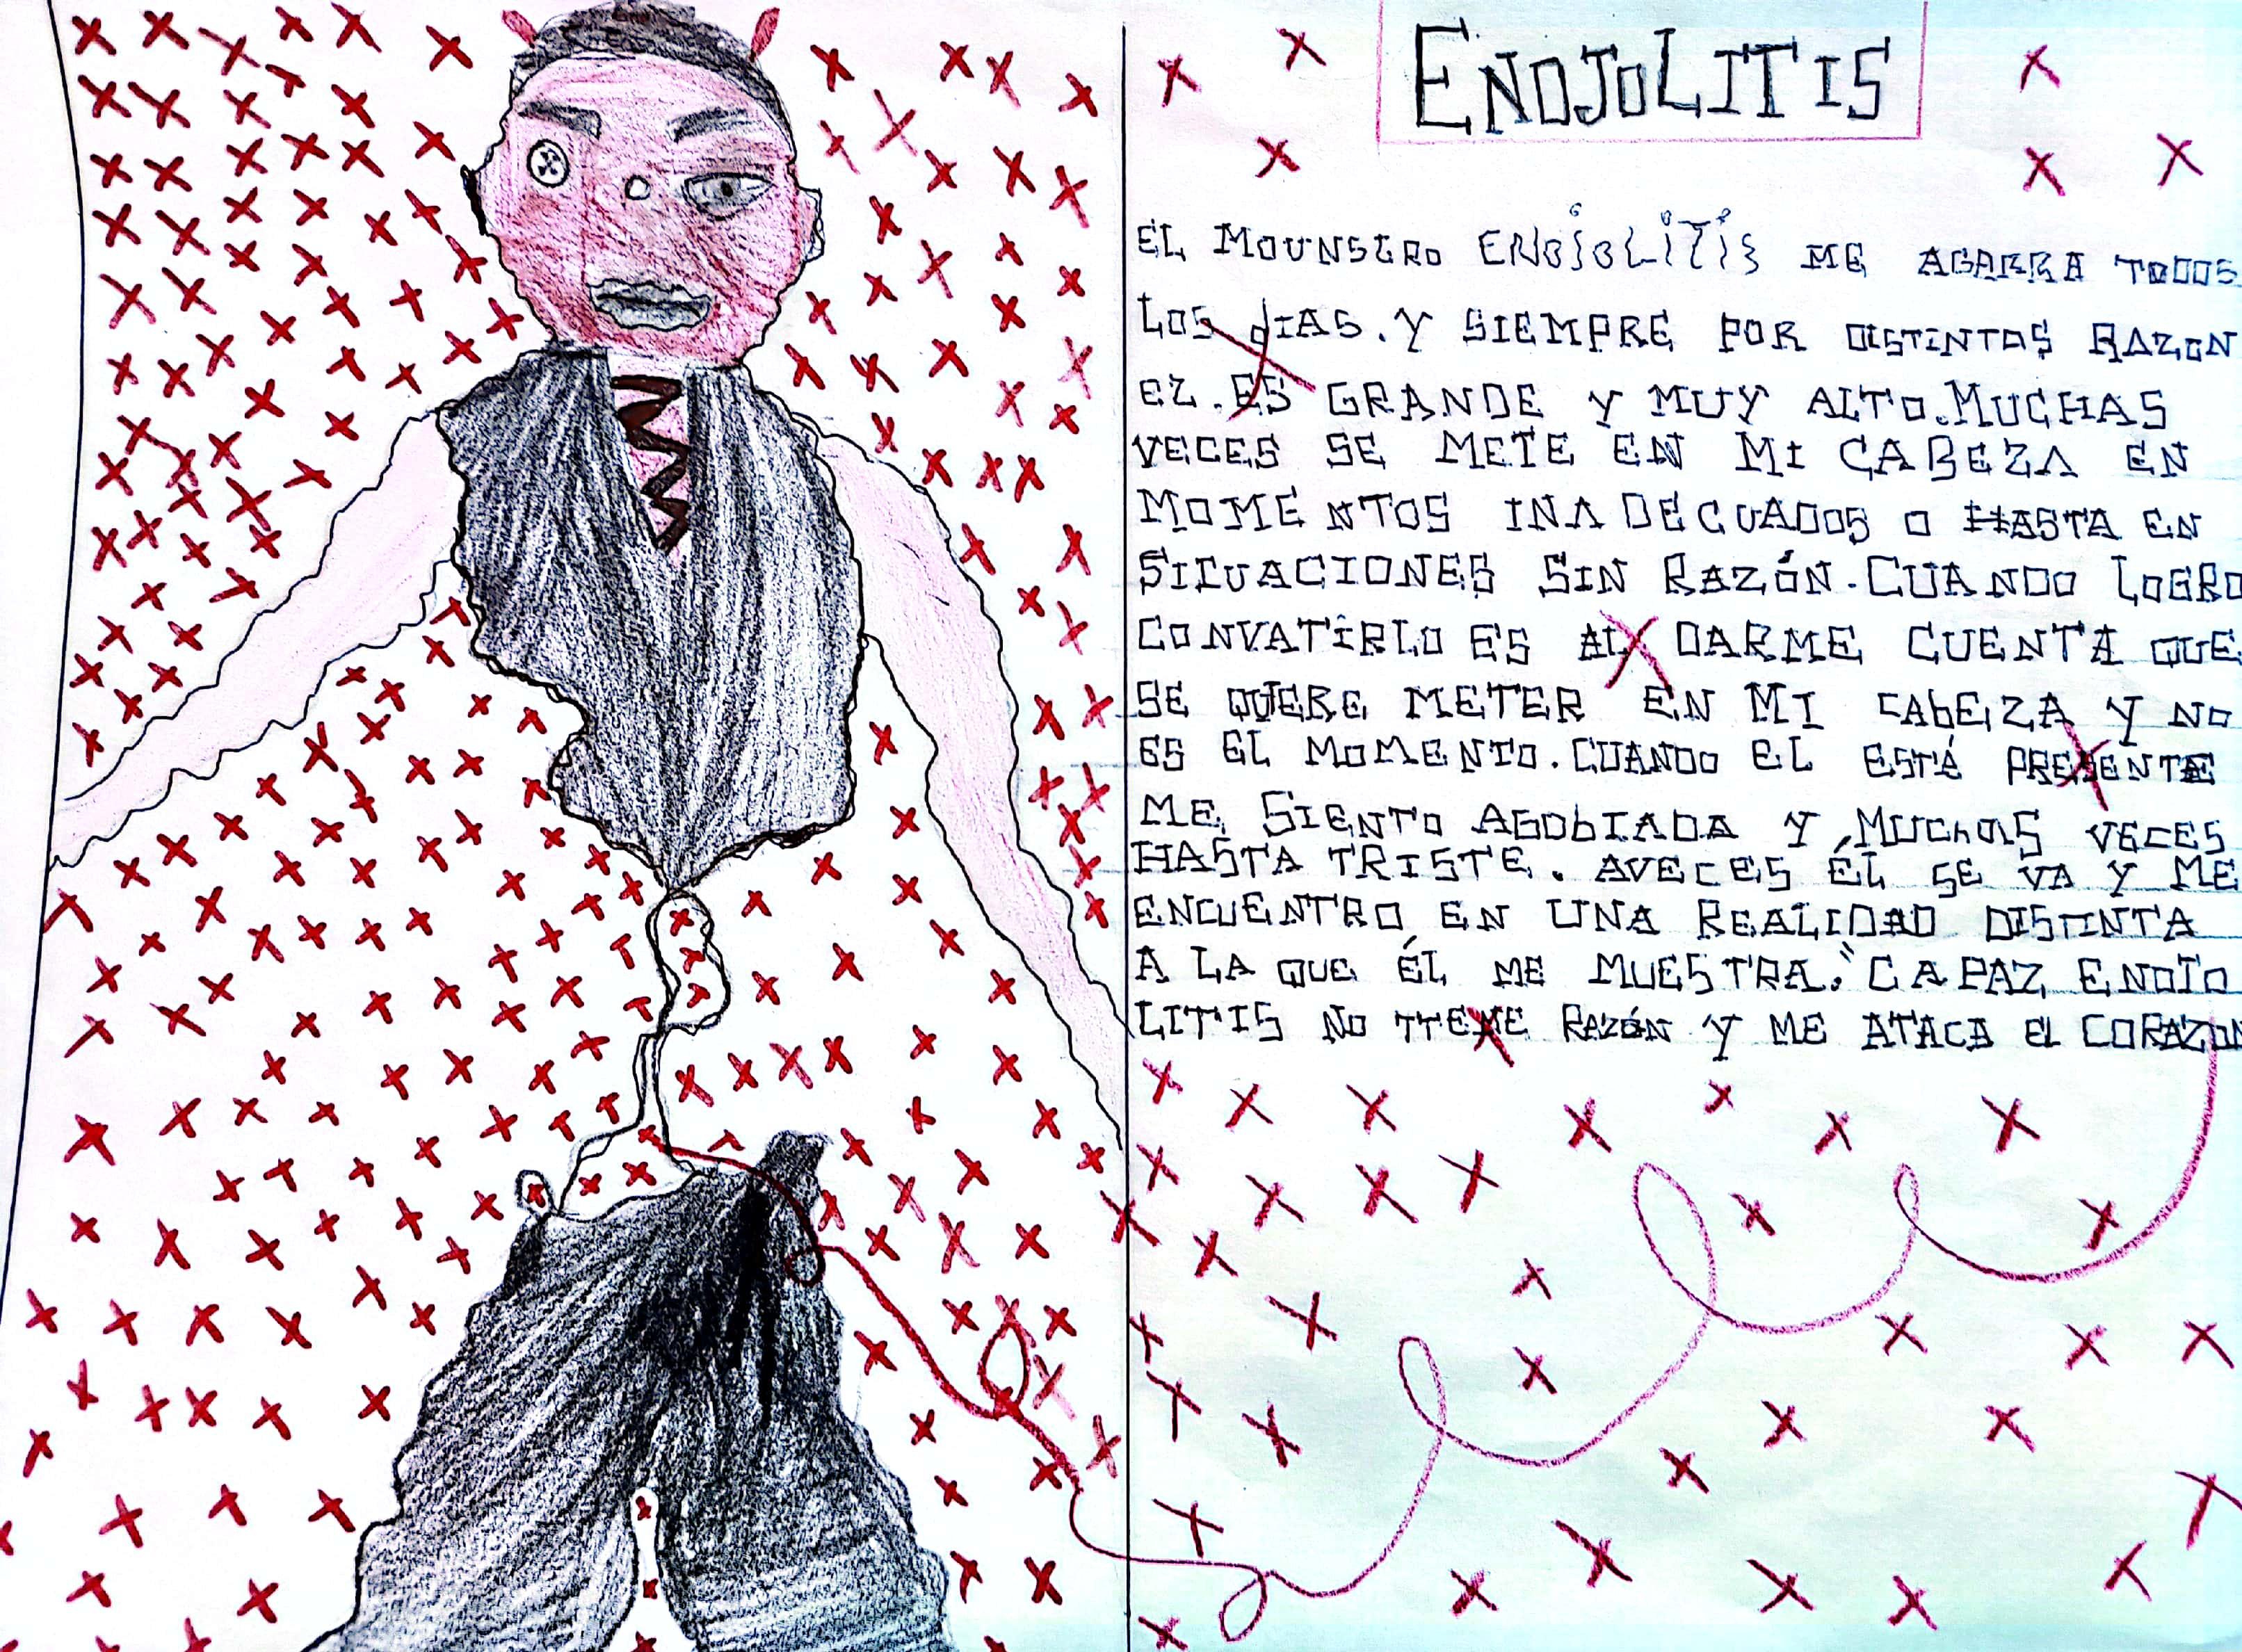 ENOJOLITIS
EL MOUNSTRO ENOJOLITIS ME AGARRA TODOS
LOS DIAS. Y SIEMPRE POR DISTINTAS RAZON
EZ. ES GRANDE Y MUY ALTO. MUCHAS
VECES SE METE EN MI CABEZA EN
MOMENTOS INADECUADOS O HASTA EN
SITUACIONES SIN RAZÓN. CUANDO LOGRO
CONVATIRLO ES AL DARME CUENTA QUE
SE QUIERE METER EN MI CABEZA Y NO
ES EL MOMENTO. CUANDO EL ESTÁ PRESENTE
ME SIENTO AGOBIADA Y MUCHAS VECES
HASTA TRISTE. AVECES ÉL SE VA Y ME
ENCUENTRO EN UNA REALIDAD DISTINTA
A LA QUE ÉL ME MUESTRA. CAPAZ ENOJO
LITIS NO TIENE RAZÓN Y ME ATACA EL CORAZON